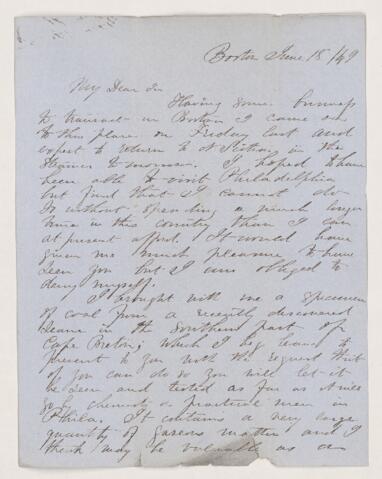 Boston June 18/49
My Dear Sir
Having some business
to transact in Boston I came on
to this place on Friday last and
expect to return to in the
Steamer tomorrow. I hoped to have
been able to visit Philadelphia
but find that I cannot do
so without spending a much longer
time in this country than I can
at present afford. It would have
given me much pleasure to have
seen you but I am obliged to
deny myself.
I brought with me a specimen
of coal from a recently discovered
seam in the southern part of
Cape Breton; which I beg leave to
present to you with the request that
if you can do so you will let it
be seen and tested as far as
by chemist & practical men in
Phila. It contains a very large
quantity of gaseous matter and I
think may be valuable as a